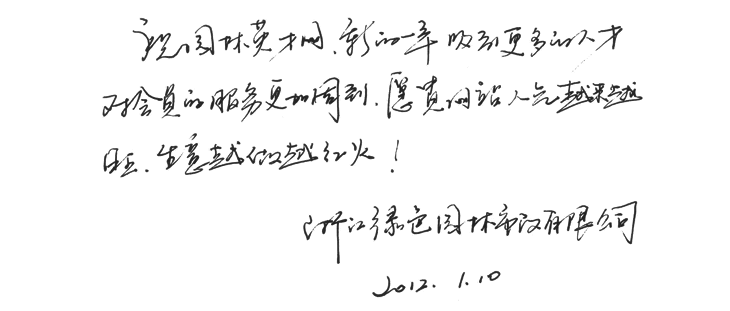 祝园林英才网,新的一年吸引更多的人才
对会员的服务更加周到,愿贵网站人气越来越
旺,生意越做越红火!
浙江绿色园林市政有限公司
2012.1.10